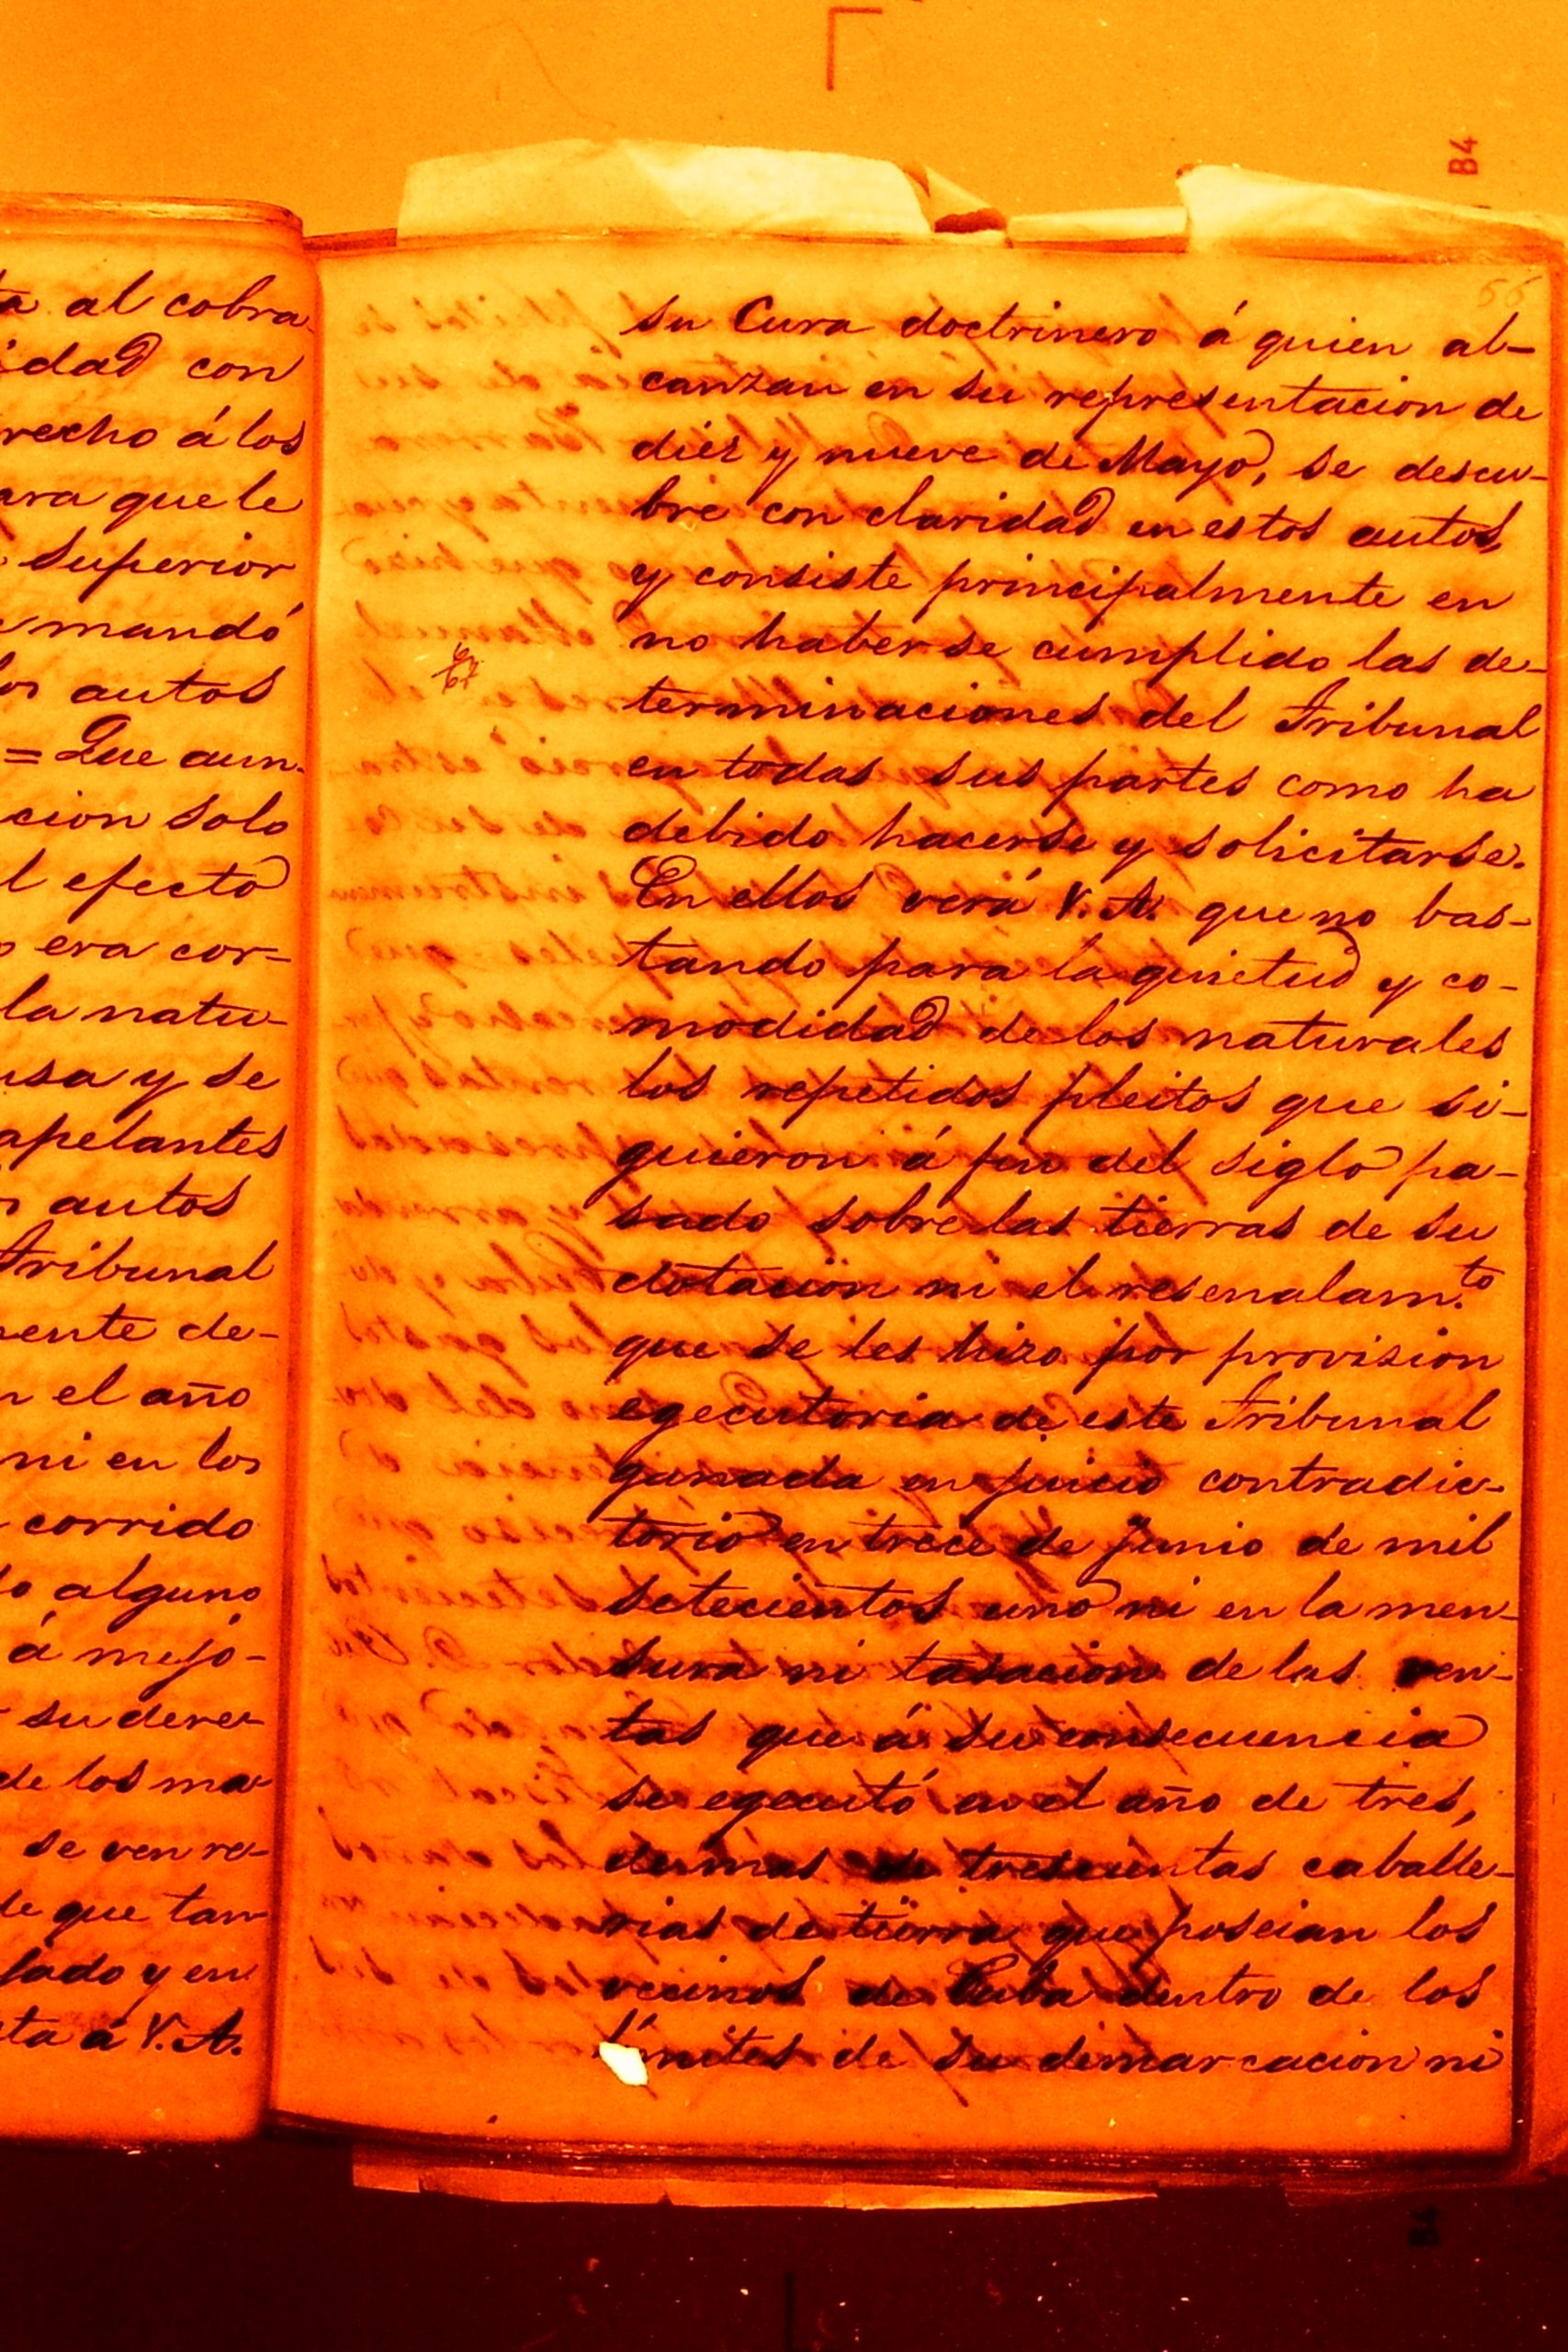 ta al cobra-
idad con
recho á los
ara que le
Superior
mandó
los autos
= Que aun-
cion solo
l efecto
o era cor-
la natu-
usa y se
apelantes
autos
Tribunal
mente de-
n el año
ni en los
corrido
do alguno
á mejo-
su dere-
de los ma-
se ven re-
de que tan-
lado y en
ta á V. A.
56
su Cura doctrinero á quien al-
canzan en su representacion de
diéz y nueve de Mayo, se descu-
bre con claridad en estos autos,
y consiste principalmente en
no haberse cumplido las de-
terminaciones del Tribunal
en todas sus partes como ha
debido hacerse y solicitarse.
En ellos verá V. A. que no bas-
tando para la quietud y co-
modidad de los naturales
los repetidos pleitos que si-
guieron á fin del siglo pa-
sado sobre las tierras de su
dotacion ni el resenalam.to
que se les hizo por provision
egecutoria de este Tribunal
ganada en juicio contradic-
torio en trece de junio de mil
setecientos uno ni en la men-
sura ni tasacion de las ven-
tas que á su consecuencia
se egecutó en el año de tres,
de mas de trescientas caballe-
rias de tierra que poseian los
vecinos de Cuba dentro de los
límites de su dimarcacion ni
67
B4
B4